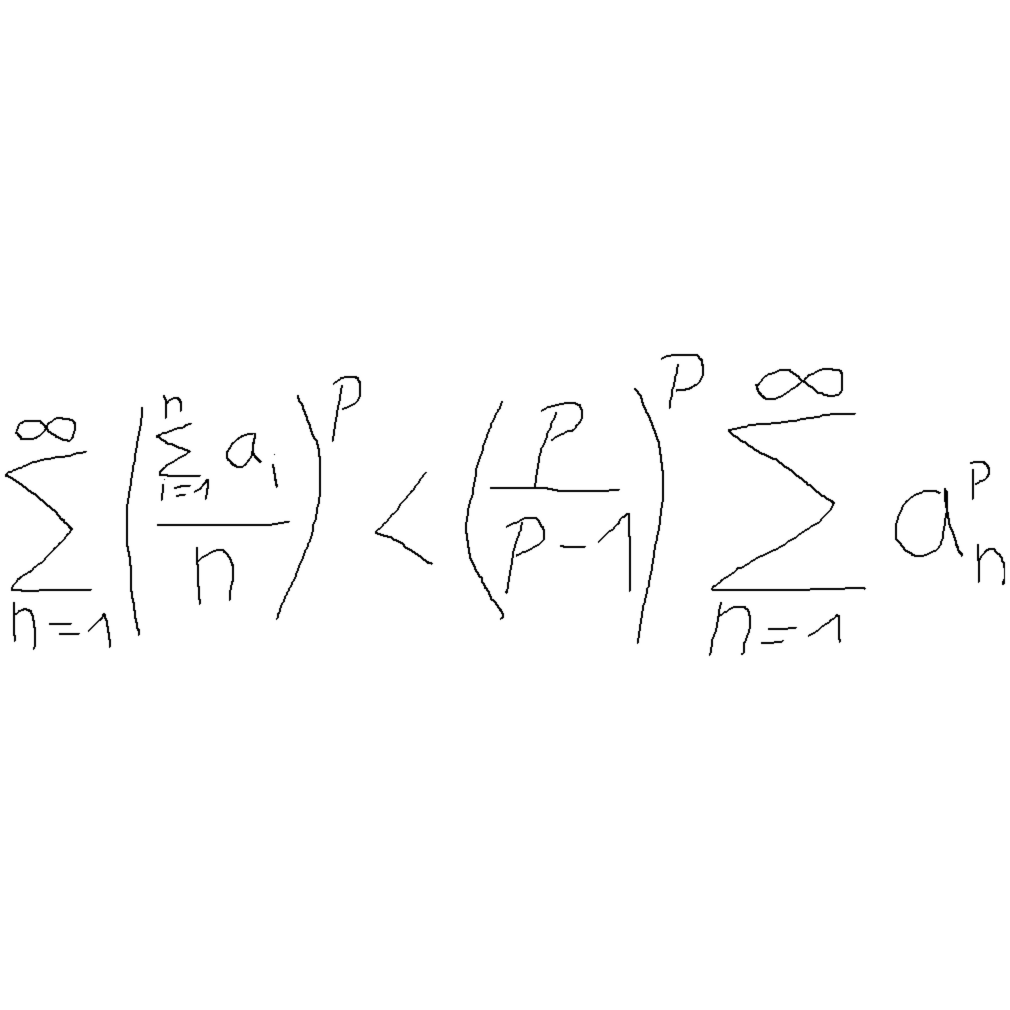 $\sum_{n=1}^{\infty} \left( \frac{\sum_{i=1}^{n} a_i}{n} \right)^p < \left( \frac{p}{p-1} \right)^p \sum_{n=1}^{\infty} a_n^p$